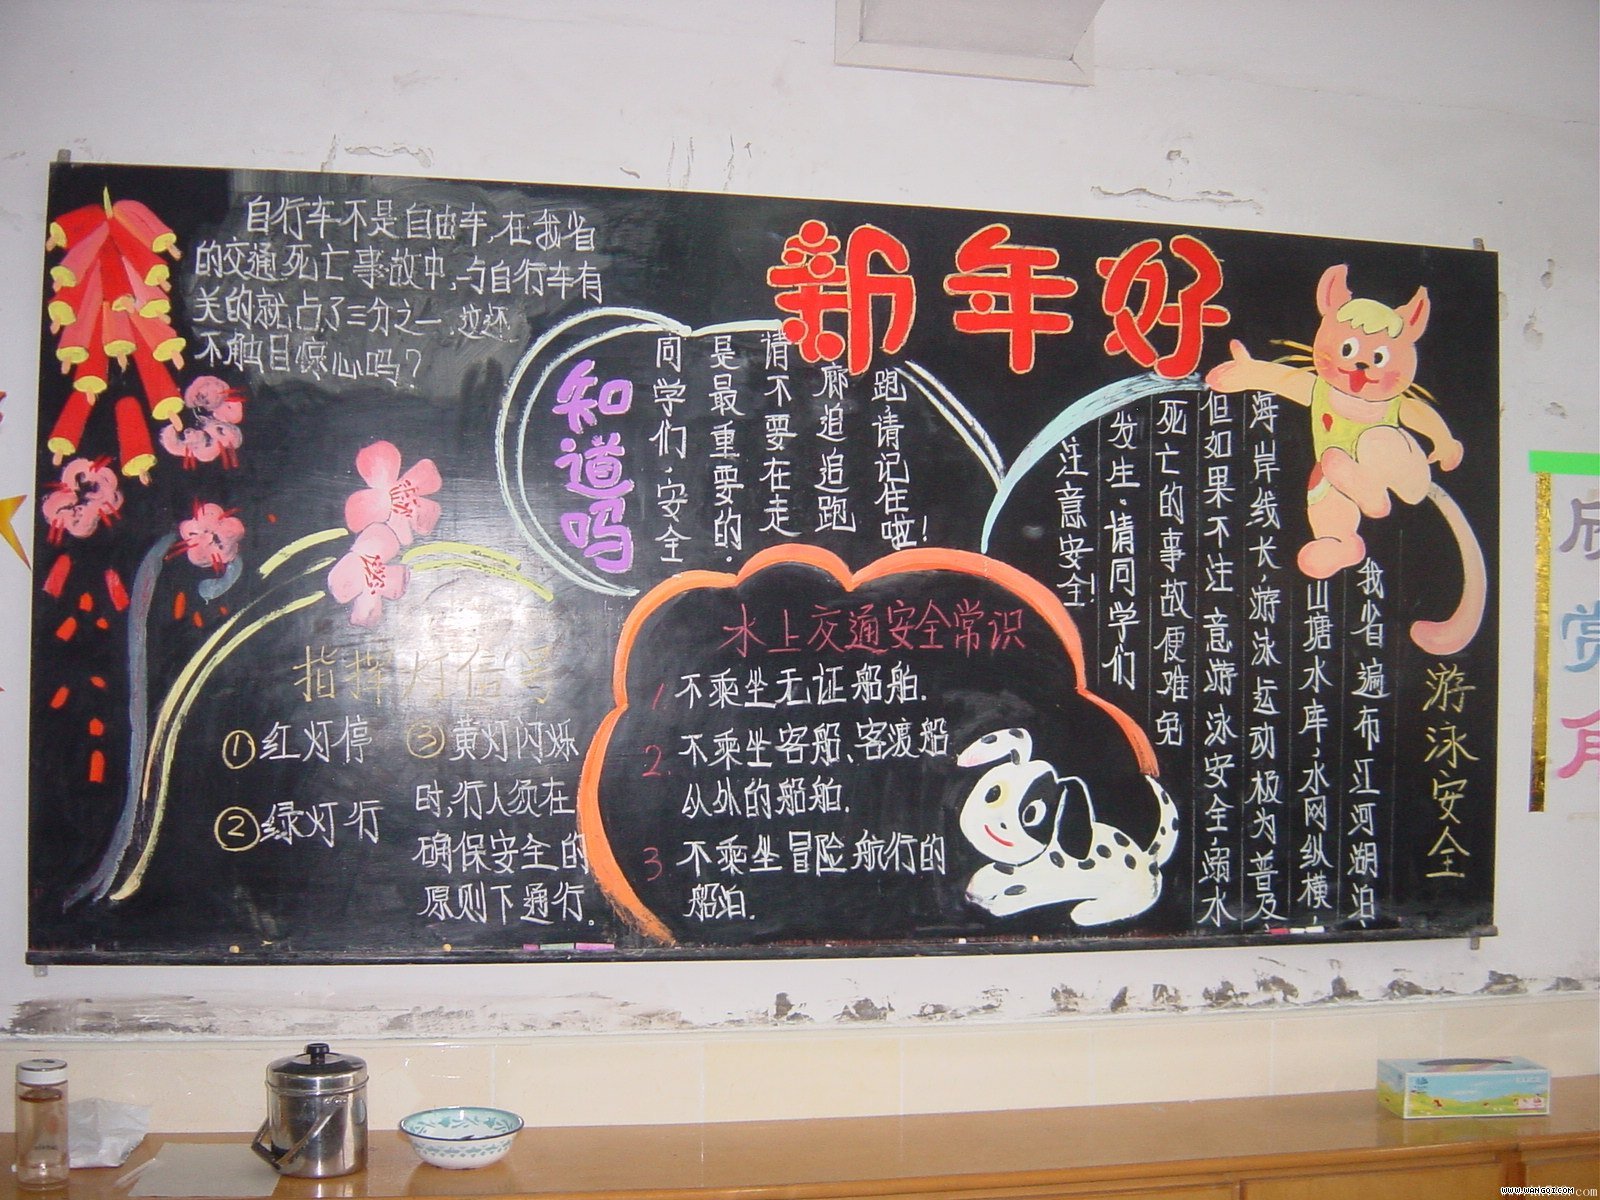 新年好
自行车不是自由车,在我省
的交通死亡事故中,与自行车有
关的就占了三分之一,这还
不触目惊心吗?
知道吗
同学们,安全
是最重要的.
请不要在走
廊追追跑
跑请记住啦!
指挥灯信号
①红灯停
②绿灯行
③黄灯闪烁
时,行人须在
确保安全的
原则下通行.
水上交通安全常识
1 不乘坐无证船舶.
2. 不乘坐客船、客渡船
以外的船舶.
3 不乘坐冒险航行的
船泊.
游泳安全
我省遍布江河湖泊,
山塘水库,水网纵横,
海岸线长,游泳运动极为普及,
但如果不注意游泳安全,溺水
死亡的事故便难免
发生.请同学们
注意安全!
欣赏角
www.wangqi.com